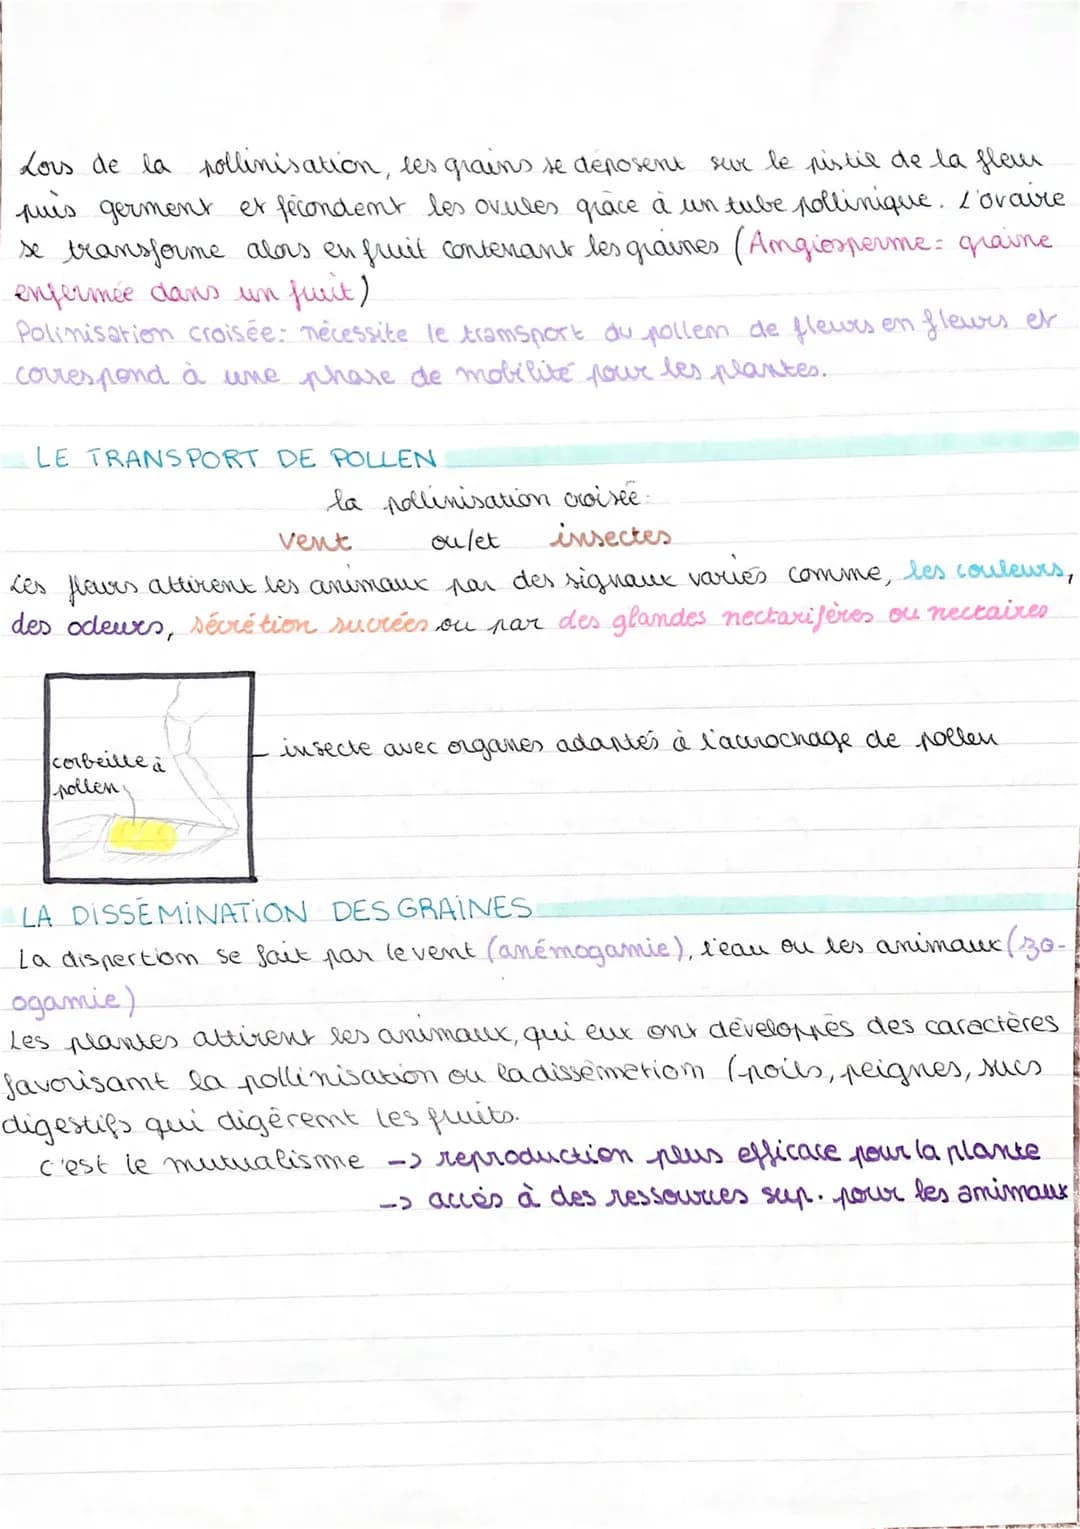 Lors de la pollinisation, les grains se déposent sur le pistil de la fleur
puis germent et fécondent les ovules grâce à un tube pollinique. L'ovaire
se transforme alors en fruit contenant les graines (Angiosperme = graine
enfermée dans un fruit)
Polinisation croisée: nécessite le transport du pollen de fleurs en fleurs et
correspond à une phase de mobilité pour les plantes.
LE TRANSPORT DE POLLEN
la pollinisation croisée:
vent ou/et insectes
Les fleurs attirent les animaux par des signaux variés comme, les couleurs,
des odeurs, sécrétion sucrées ou par des glandes nectarifères ou nectaires
corbeille à
pollen
insecte avec organes adaptés à l'accrochage de pollen
LA DISSÉMINATION DES GRAINES
La dispertion se fait par le vent (anémogamie), l'eau ou les animaux (zo-
ogamie)
Les plantes attirent les animaux, qui eux ont développés des caractères
favorisant la pollinisation ou la dissémetion (poils, peignes, sucs
digestifs qui digèrent les fruits.
c'est le mutualisme -> reproduction plus efficace pour la plante
-> accès à des ressources sup. pour les animaux